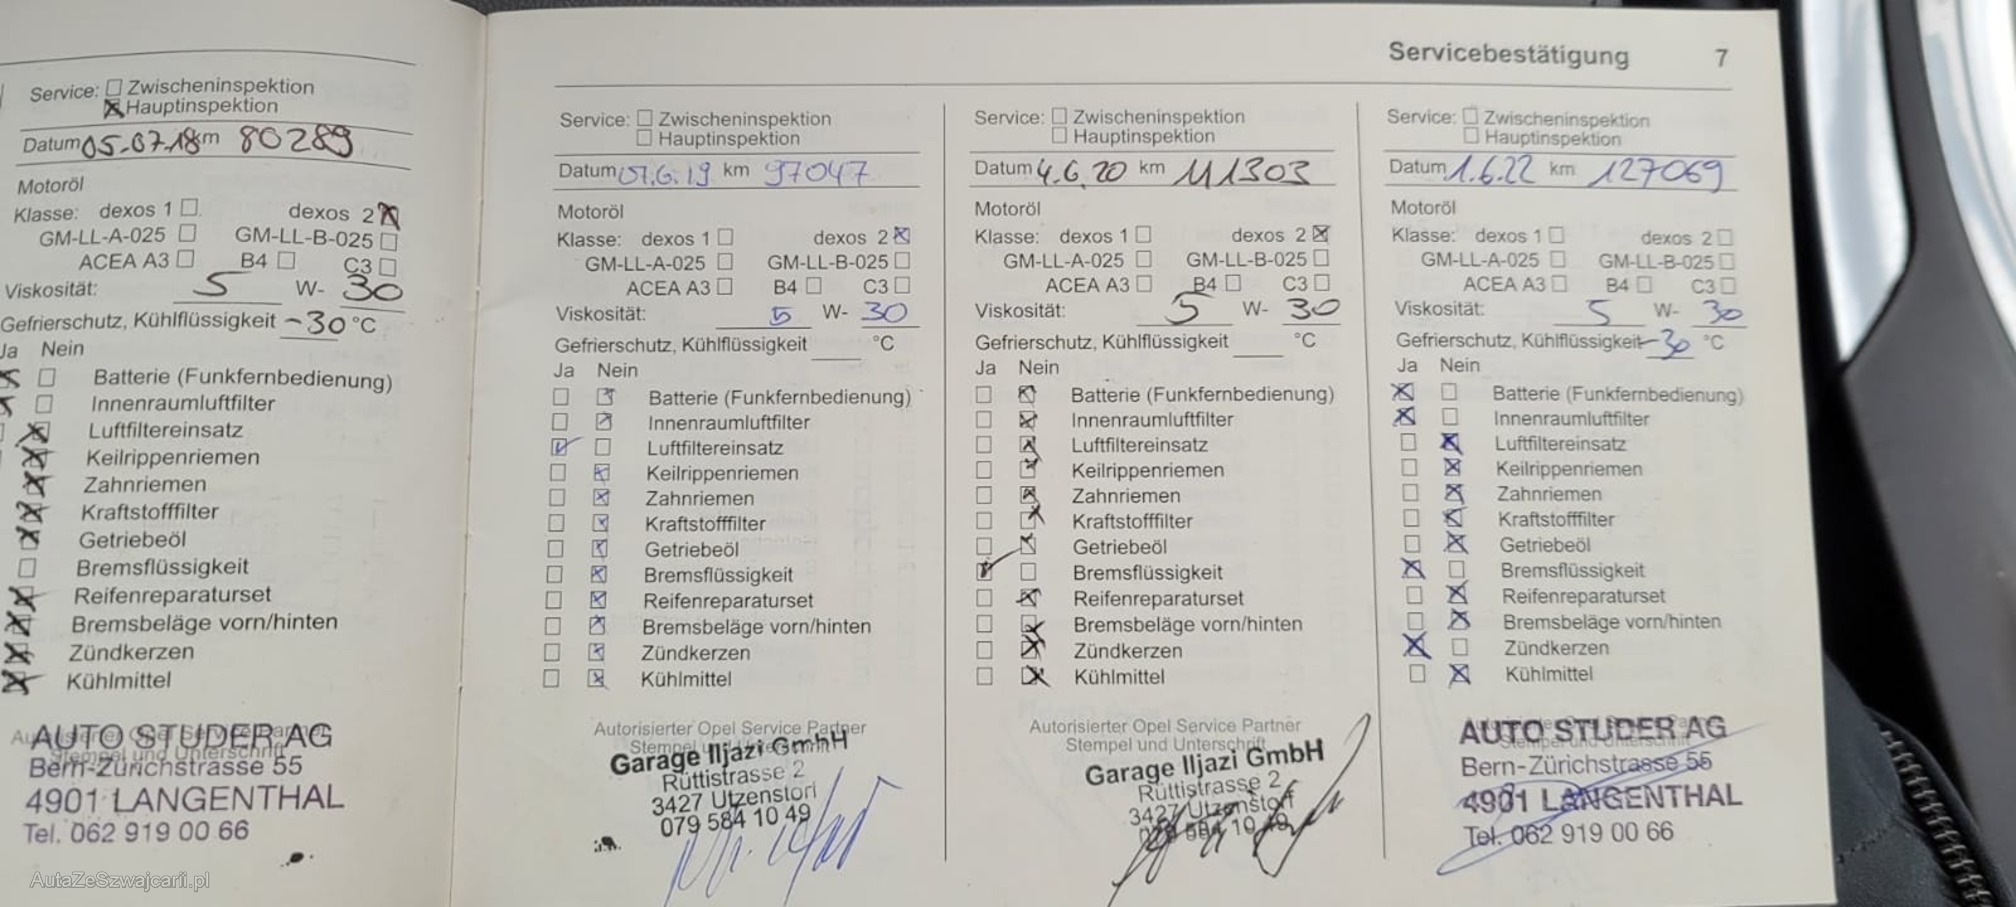 Servicebestätigung 7
Service: Zwischeninspektion
Hauptinspektion
Datum 05.07.18 km 80289
Motoröl
Klasse: dexos 1 dexos 2
GM-LL-A-025 GM-LL-B-025
ACEA A3 B4 C3
Viskosität: 5 W- 30
Gefrierschutz, Kühlflüssigkeit -30 °C
Ja Nein
Batterie (Funkfernbedienung)
Innenraumluftfilter
Luftfiltereinsatz
Keilrippenriemen
Zahnriemen
Kraftstofffilter
Getriebeöl
Bremsflüssigkeit
Reifenreparaturset
Bremsbeläge vorn/hinten
Zündkerzen
Kühlmittel
AUTO STUDER AG
Bern-Zürichstrasse 55
4901 LANGENTHAL
Tel. 062 919 00 66
Service: Zwischeninspektion
Hauptinspektion
Datum 07.6.19 km 97047
Motoröl
Klasse: dexos 1 dexos 2
GM-LL-A-025 GM-LL-B-025
ACEA A3 B4 C3
Viskosität: 5 W- 30
Gefrierschutz, Kühlflüssigkeit °C
Ja Nein
Batterie (Funkfernbedienung)
Innenraumluftfilter
Luftfiltereinsatz
Keilrippenriemen
Zahnriemen
Kraftstofffilter
Getriebeöl
Bremsflüssigkeit
Reifenreparaturset
Bremsbeläge vorn/hinten
Zündkerzen
Kühlmittel
Autorisierter Opel Service Partner
Stempel und Unterschrift
Garage Iljazi GmbH
Rüttistrasse 2
3427 Utzenstorf
079 584 10 49
Service: Zwischeninspektion
Hauptinspektion
Datum 4.6.20 km 111303
Motoröl
Klasse: dexos 1 dexos 2
GM-LL-A-025 GM-LL-B-025
ACEA A3 B4 C3
Viskosität: 5 W- 30
Gefrierschutz, Kühlflüssigkeit °C
Ja Nein
Batterie (Funkfernbedienung)
Innenraumluftfilter
Luftfiltereinsatz
Keilrippenriemen
Zahnriemen
Kraftstofffilter
Getriebeöl
Bremsflüssigkeit
Reifenreparaturset
Bremsbeläge vorn/hinten
Zündkerzen
Kühlmittel
Autorisierter Opel Service Partner
Stempel und Unterschrift
Garage Iljazi GmbH
Rüttistrasse 2
3427 Utzenstorf
079 584 10 49
Service: Zwischeninspektion
Hauptinspektion
Datum 1.6.22 km 127069
Motoröl
Klasse: dexos 1 dexos 2
GM-LL-A-025 GM-LL-B-025
ACEA A3 B4 C3
Viskosität: 5 W- 30
Gefrierschutz, Kühlflüssigkeit -30 °C
Ja Nein
Batterie (Funkfernbedienung)
Innenraumluftfilter
Luftfiltereinsatz
Keilrippenriemen
Zahnriemen
Kraftstofffilter
Getriebeöl
Bremsflüssigkeit
Reifenreparaturset
Bremsbeläge vorn/hinten
Zündkerzen
Kühlmittel
AUTO STUDER AG
Bern-Zürichstrasse 55
4901 LANGENTHAL
Tel. 062 919 00 66
AutaZeSzwajcarii.pl